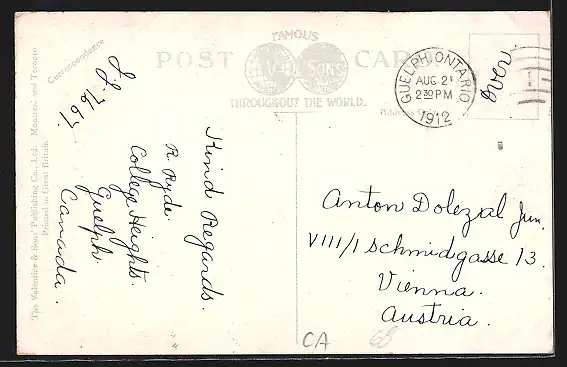 FAMOUS
POST CARD
V & SONS
THROUGHOUT THE WORLD.
Correspondence
Address Only
The Valentine & Sons' Publishing Co., Ltd. Montreal and Toronto
Printed in Great Britain.
GUELPH, ONTARIO
AUG 21
2 30 PM
1912
over.
7667
Kind Regards.
R. Ryde
College Heights.
Guelph
Canada.
Anton Dolezal jun.
VIII/1 Schmidgasse 13.
Vienna.
Austria.
CA
68